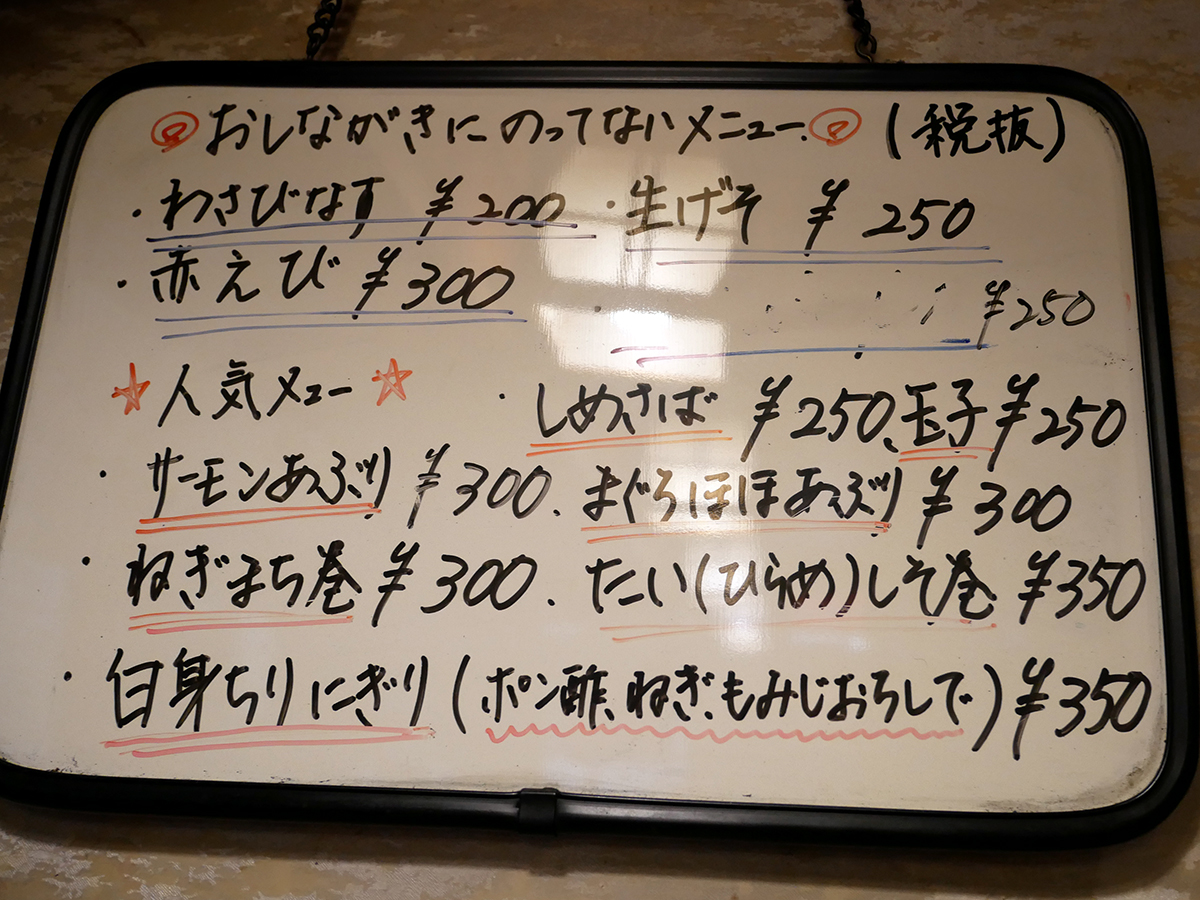 おしながきにのってないメニュー (税抜)
・わさびなす ¥200 ・生げそ ¥250
・赤えび ¥300
¥250
☆人気メニュー☆
・しめさば ¥250、玉子 ¥250
・サーモンあぶり ¥300、まぐろほほあぶり ¥300
・ねぎまち巻 ¥300、たい(ひらめ)しそ巻 ¥350
・白身ちりにぎり(ポン酢、ねぎ、もみじおろしで) ¥350